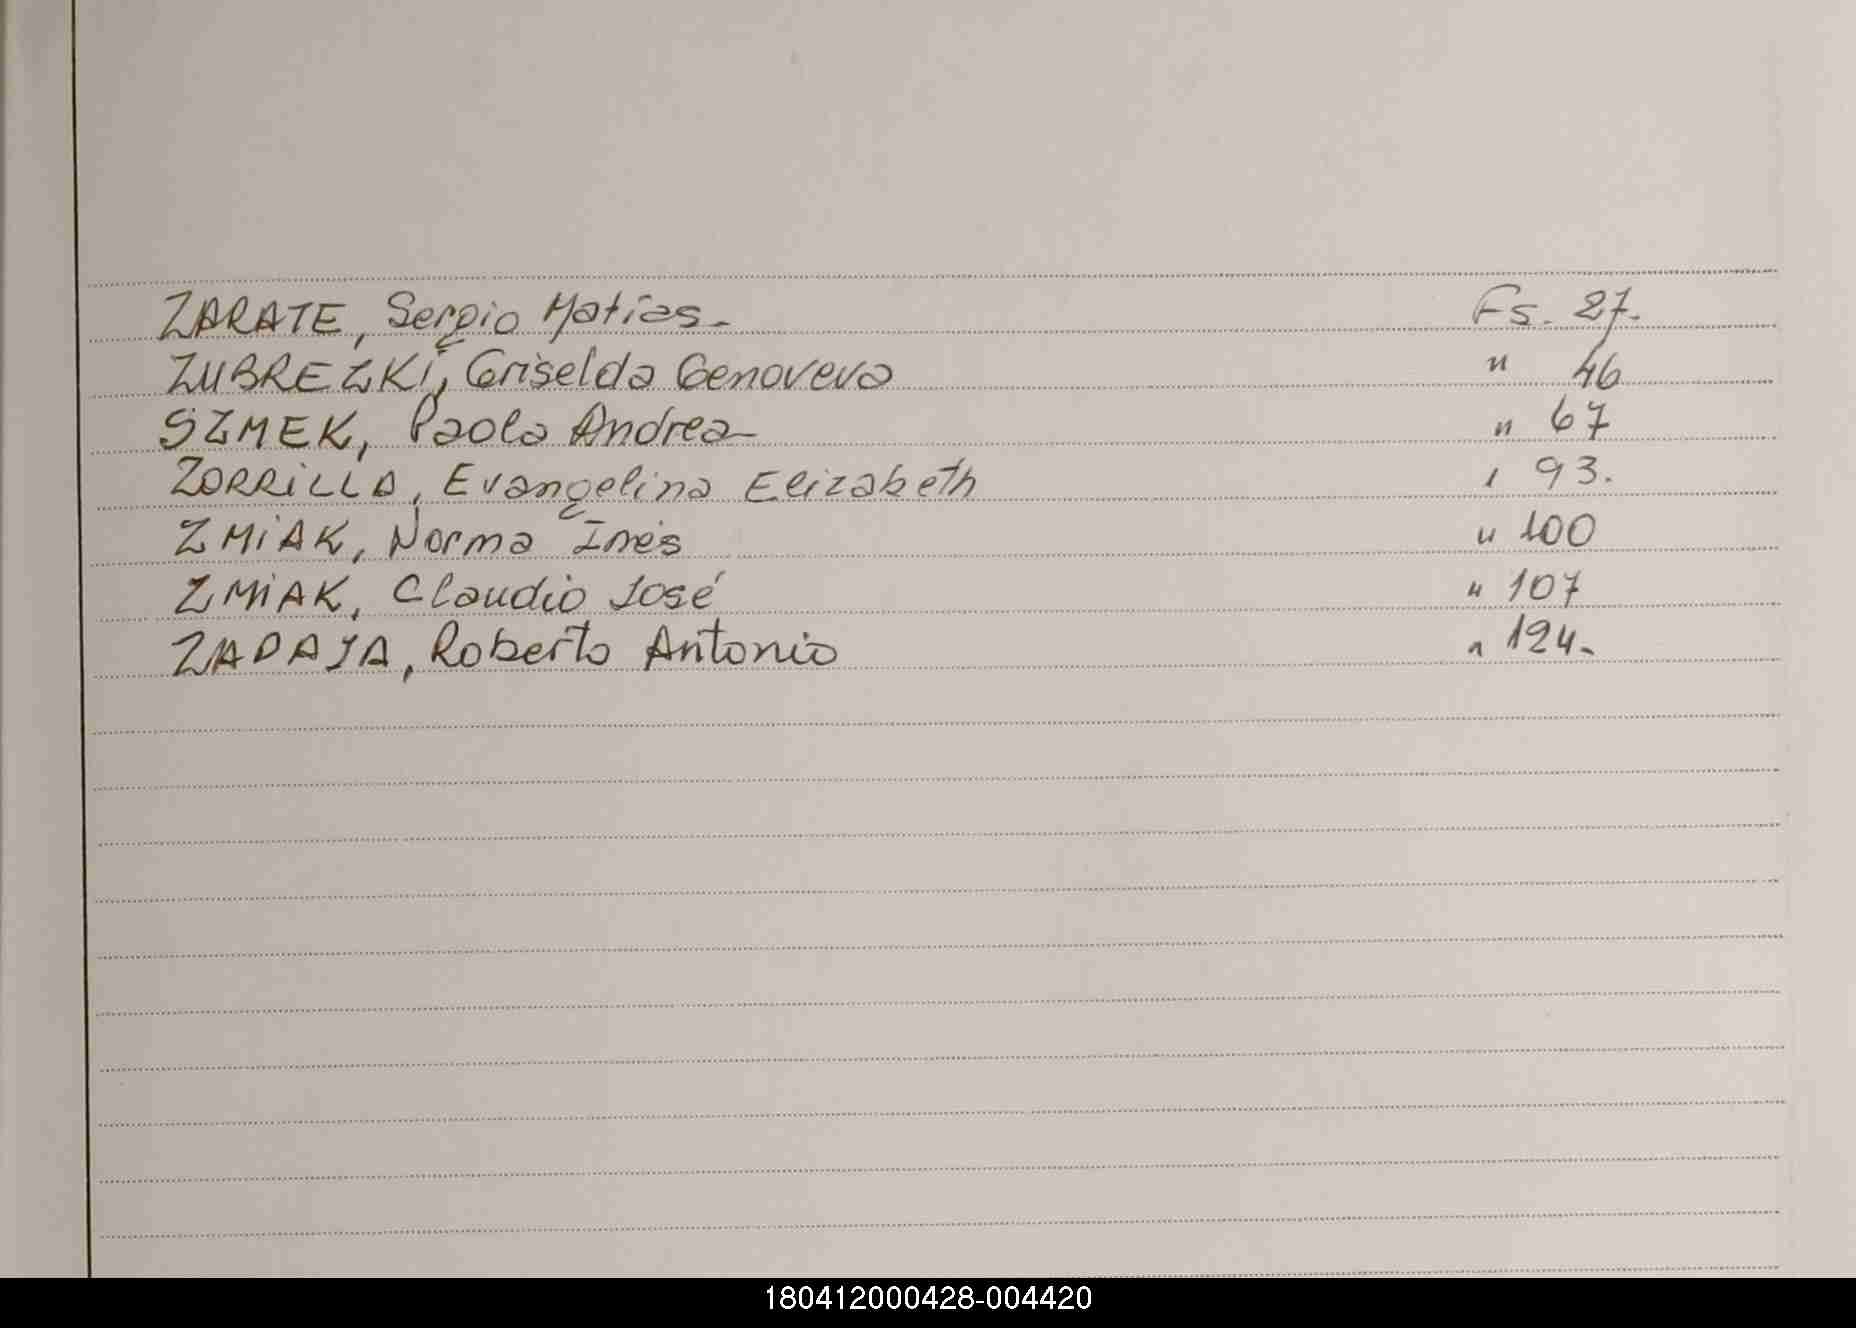 ZARATE, Sergio Matías- Fs. 27.
ZUBREZKI, Griselda Genoveva " 46
SZMEK, Paola Andrea- " 67
ZORRILLA, Evangelina Elizabeth " 93.
ZMIAK, Norma Inés " 100
ZMIAK, Claudio José " 107
ZADAJA, Roberto Antonio " 124.
180412000428-004420